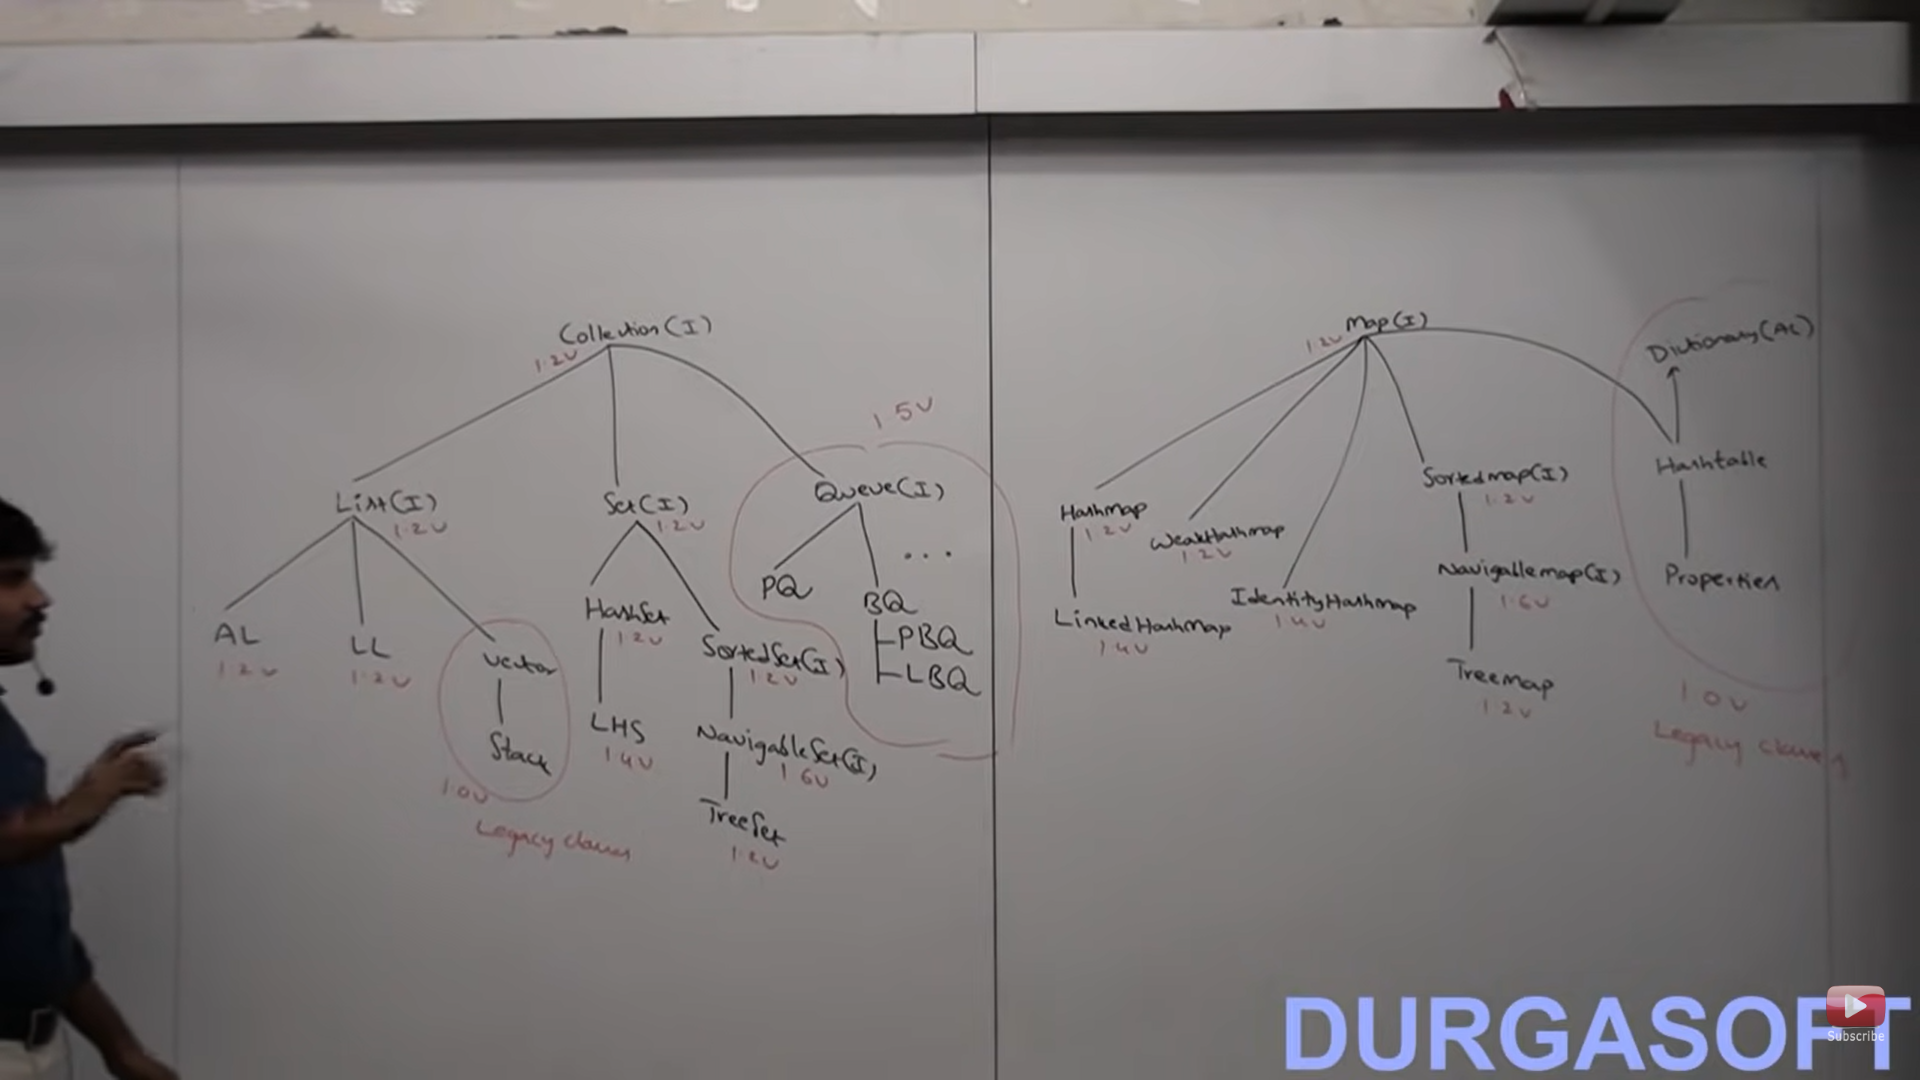 Collection(I)
1.2V
List(I)
1.2V
AL
1.2V
LL
1.2V
Vector
Stack
1.0V
Legacy classes
Set(I)
1.2V
HashSet
1.2V
LHS
1.4V
SortedSet(I)
1.2V
NavigableSet(I)
1.6V
TreeSet
1.2V
1.5V
Queue(I)
PQ
...
BQ
PBQ
LBQ
Map(I)
1.2V
Hashmap
1.2V
LinkedHashMap
1.4V
WeakHashmap
1.2V
IdentityHashmap
1.4V
Sortedmap(I)
1.2V
Navigablemap(I)
1.6V
Treemap
1.2V
Dictionary(AC)
Hashtable
Properties
1.0V
Legacy classes
DURGASOFT
Subscribe